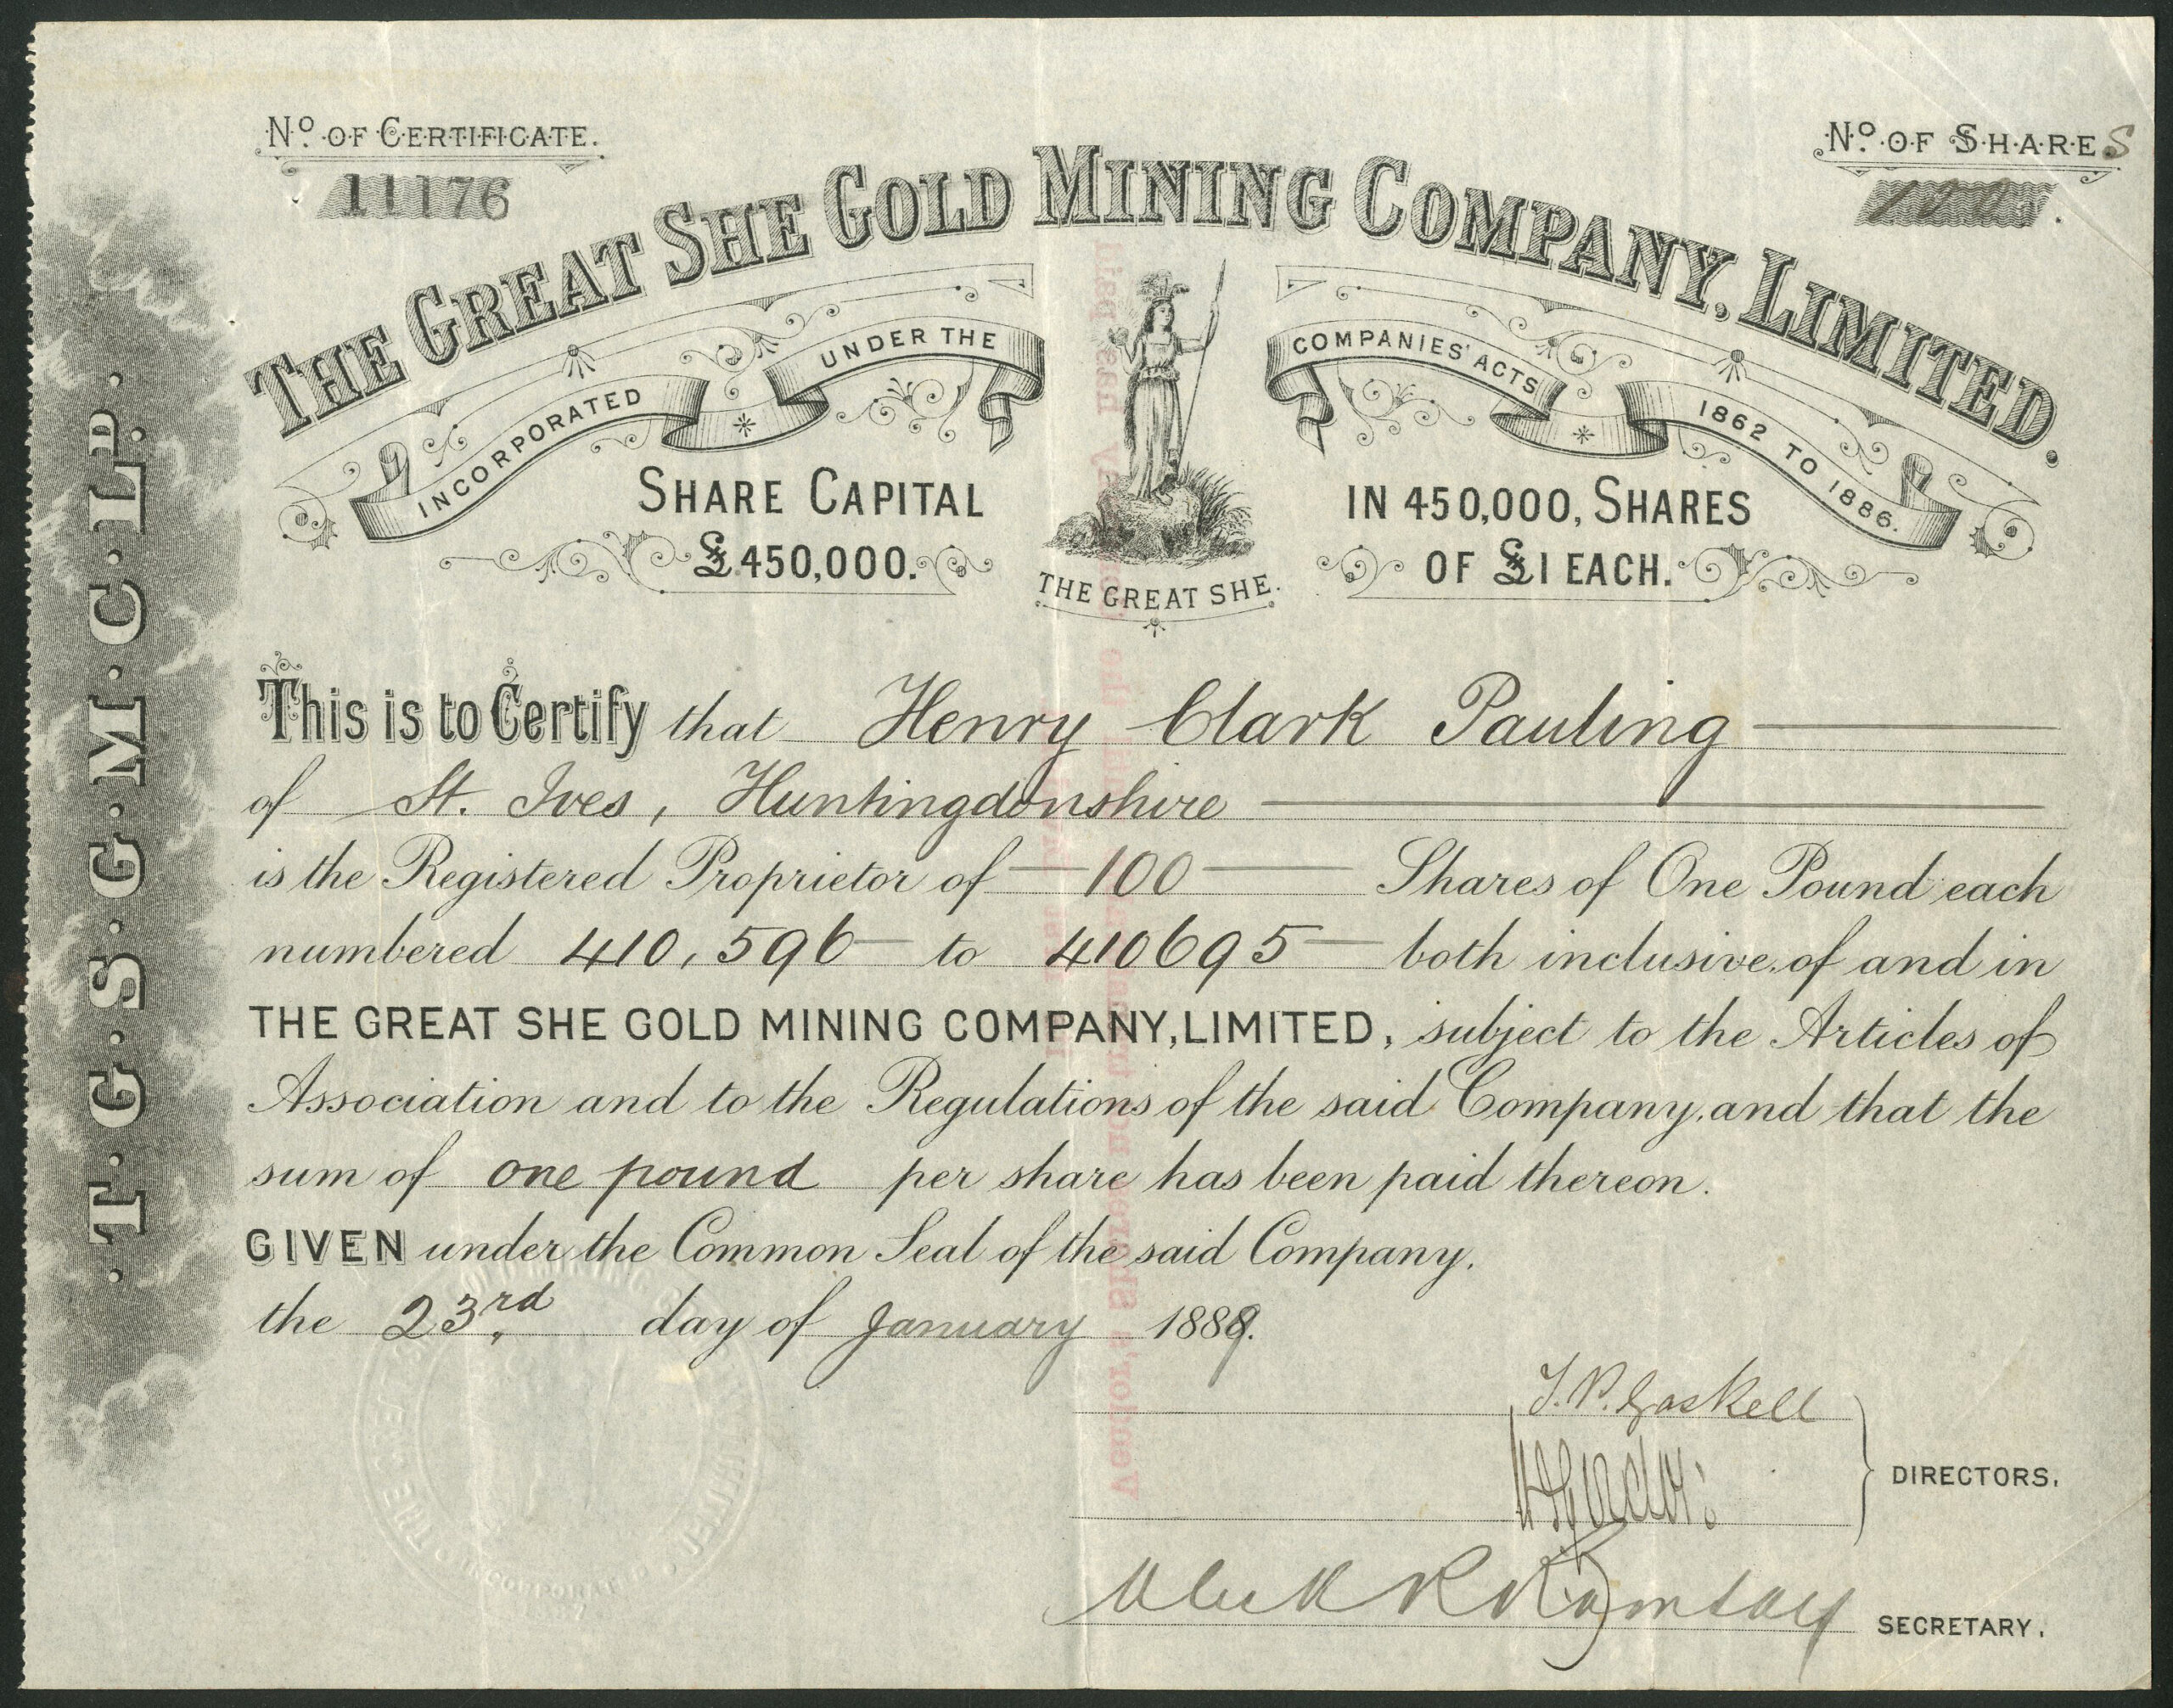 No. OF CERTIFICATE.
11176
No. OF SHARES
100
THE GREAT SHE GOLD MINING COMPANY, LIMITED.
INCORPORATED UNDER THE COMPANIES' ACTS 1862 TO 1886.
SHARE CAPITAL £450,000.
IN 450,000, SHARES OF £1 EACH.
THE GREAT SHE.
T.G.S.G.M.C.LD.
This is to Certify that Henry Clark Pauling
of St. Ives, Huntingdonshire
is the Registered Proprietor of 100 Shares of One Pound each
numbered 410,596 to 410695 both inclusive of and in
THE GREAT SHE GOLD MINING COMPANY, LIMITED, subject to the Articles of
Association and to the Regulations of the said Company, and that the
sum of one pound per share has been paid thereon.
GIVEN under the Common Seal of the said Company.
the 23rd day of January 1889.
T.P. Gaskell
DIRECTORS.
SECRETARY.